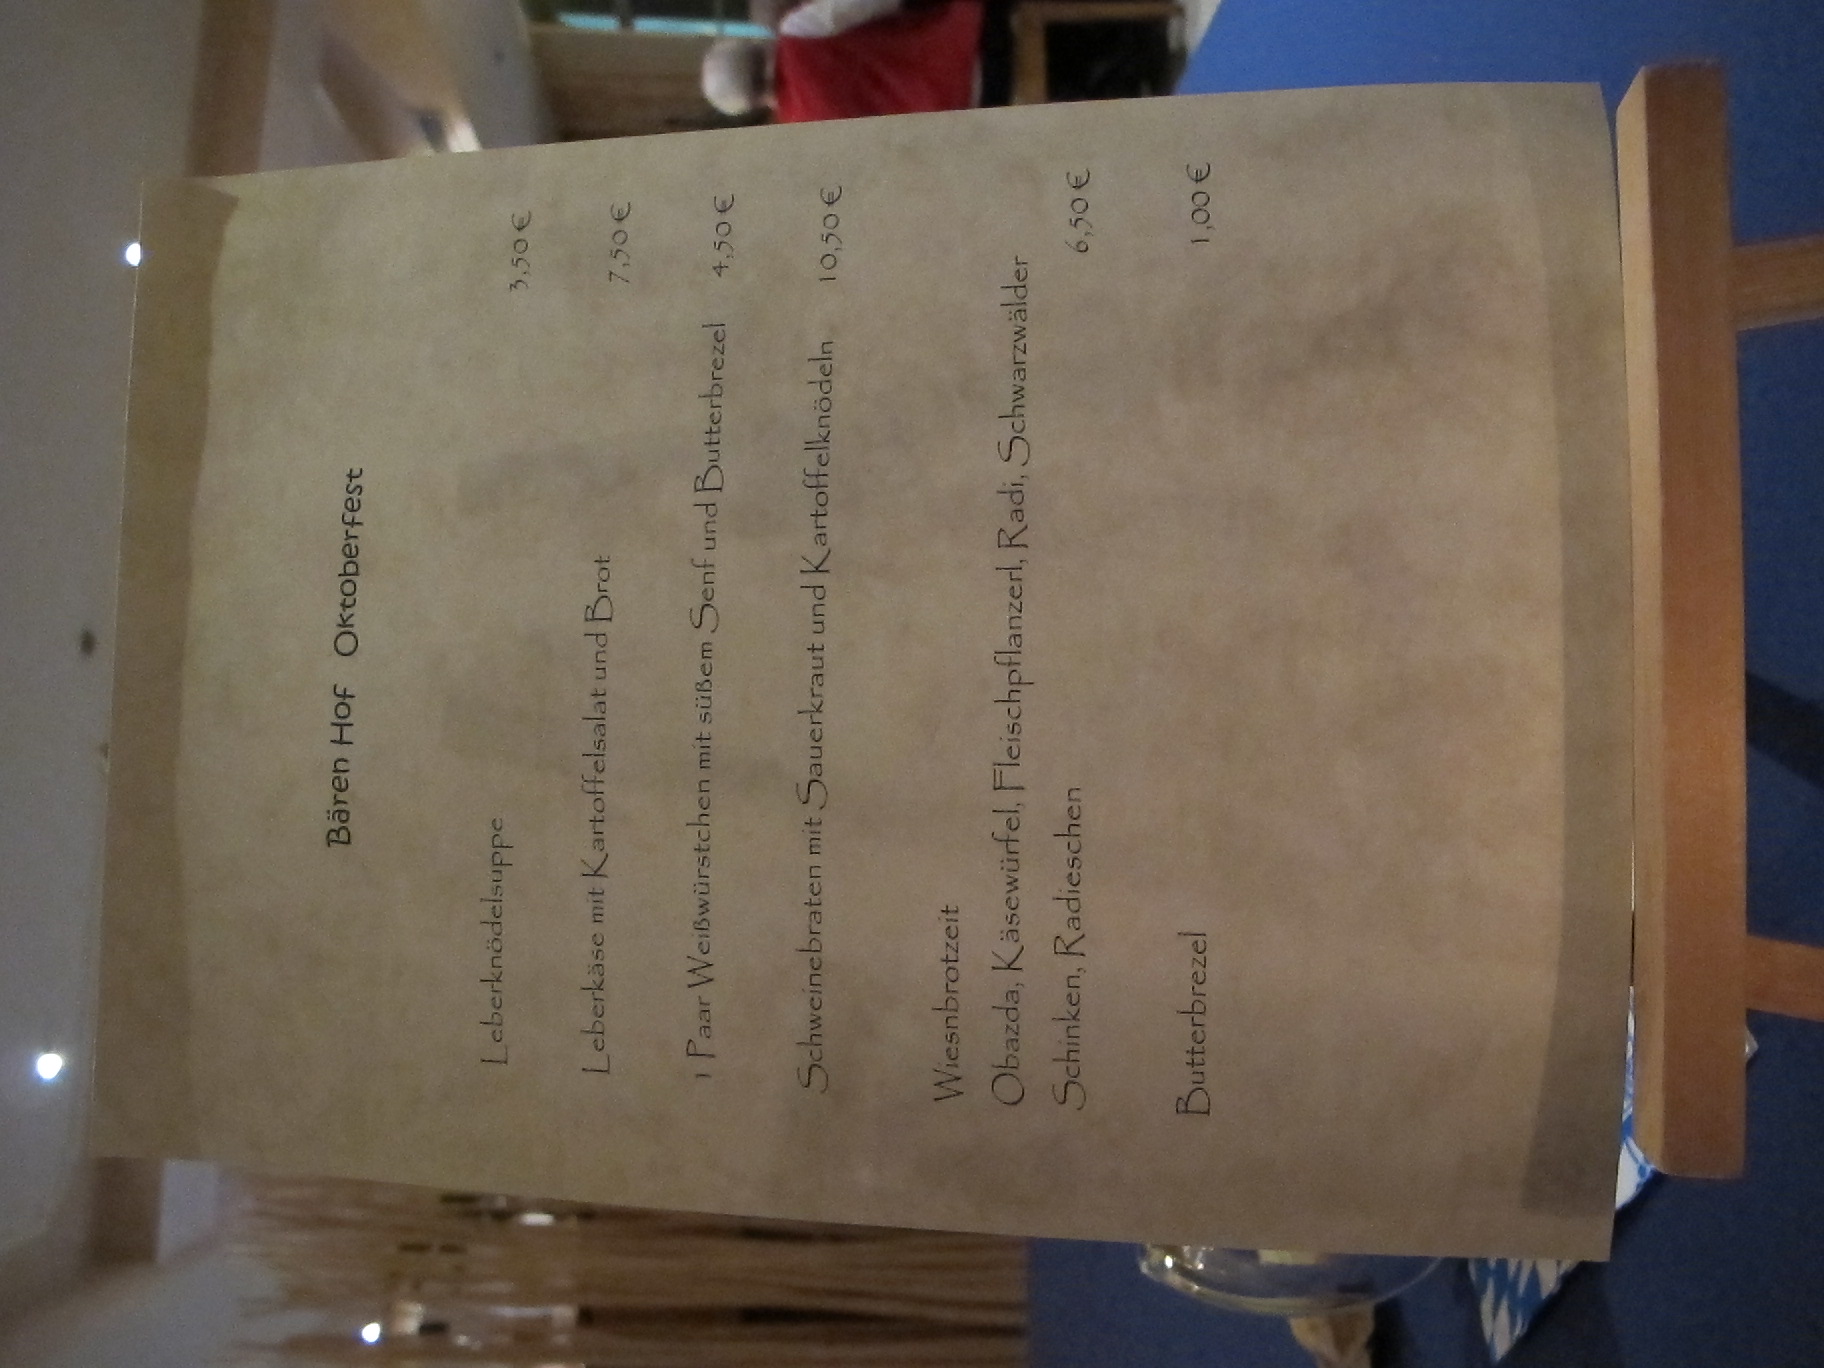 Bären Hof Oktoberfest
Leberknödelsuppe 3,50 €
Leberkäse mit Kartoffelsalat und Brot 7,50 €
1 Paar Weißwürstchen mit süßem Senf und Butterbrezel 4,50 €
Schweinebraten mit Sauerkraut und Kartoffelknödeln 10,50 €
Wiesnbrotzeit
Obazda, Käsewürfel, Fleischpflanzerl, Radi, Schwarzwälder
Schinken, Radieschen 6,50 €
Butterbrezel 1,00 €